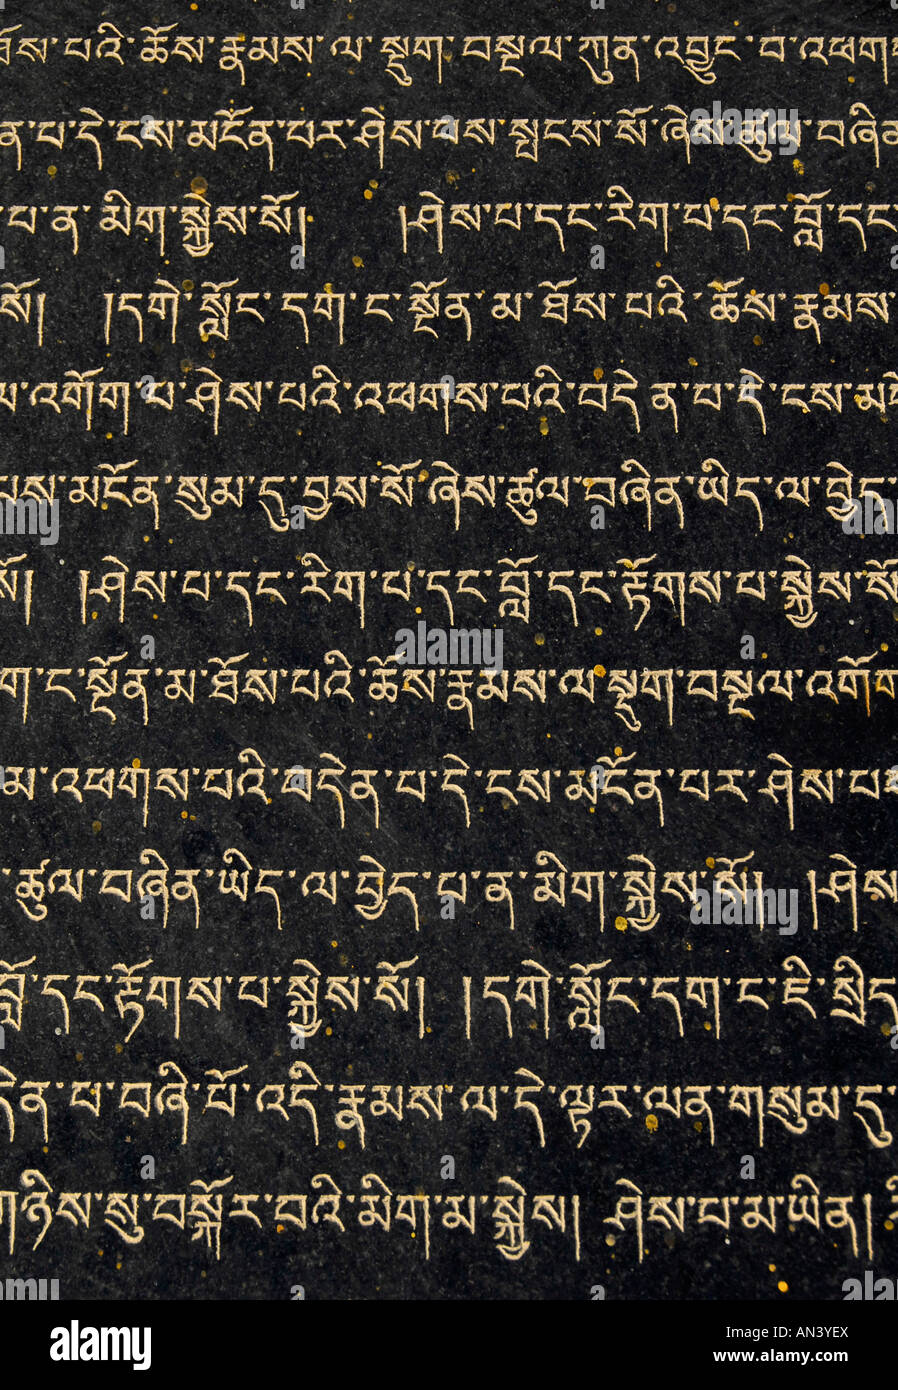 ཐོས་པའི་ཆོས་རྣམས་ལ་སྡུག་བསྔལ་ཀུན་འབྱུང་བ་འཕགས
ན་པ་དེ་ངས་མངོན་པར་ཤེས་པས་སྤངས་སོ་ཞེས་ཚུལ་བཞིན
པ་ན་མིག་སྐྱེས་སོ། །ཤེས་པ་དང་རིག་པ་དང་བློ་དང
སོ། །དགེ་སློང་དག་ང་སྔོན་མ་ཐོས་པའི་ཆོས་རྣམས་
ལ་འགོག་པ་ཤེས་པའི་འཕགས་པའི་བདེན་པ་དེ་ངས་མངོ
པས་མངོན་སུམ་དུ་བྱས་སོ་ཞེས་ཚུལ་བཞིན་ཡིད་ལ་བྱེད་
སོ། །ཤེས་པ་དང་རིག་པ་དང་བློ་དང་རྟོགས་པ་སྐྱེས་སོ
ག་ང་སྔོན་མ་ཐོས་པའི་ཆོས་རྣམས་ལ་སྡུག་བསྔལ་འགོག
མ་འཕགས་པའི་བདེན་པ་དེ་ངས་མངོན་པར་ཤེས་པས
་ཚུལ་བཞིན་ཡིད་ལ་བྱེད་པ་ན་མིག་སྐྱེས་སོ། །ཤེས
བློ་དང་རྟོགས་པ་སྐྱེས་སོ། །དགེ་སློང་དག་ང་ཇི་སྲིད
དེན་པ་བཞི་པོ་འདི་རྣམས་ལ་དེ་ལྟར་ལན་གསུམ་དུ་
གཉིས་སུ་བསྐོར་བའི་མིག་མ་སྐྱེས། ཤེས་པ་མ་ཡིན།
alamy
Image ID: AN3YEX
www.alamy.com